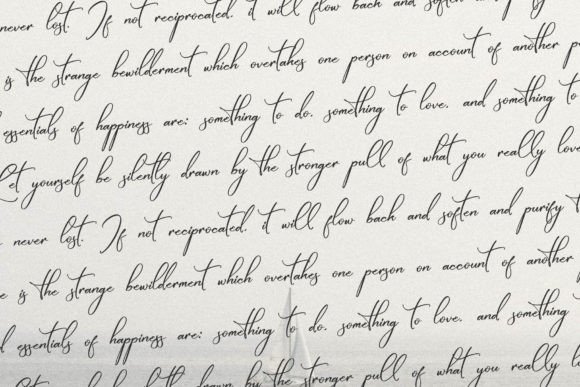 never lost. If not reciprocated, it will flow back and soften
is the strange bewilderment which overtakes one person on account of another
essentials of happiness are: something to do, something to love, and something to
Let yourself be silently drawn by the stronger pull of what you really love
never lost. If not reciprocated, it will flow back and soften and purify
is the strange bewilderment which overtakes one person on account of another
essentials of happiness are: something to do, something to love, and something
yourself be silently drawn by the stronger pull of what you really